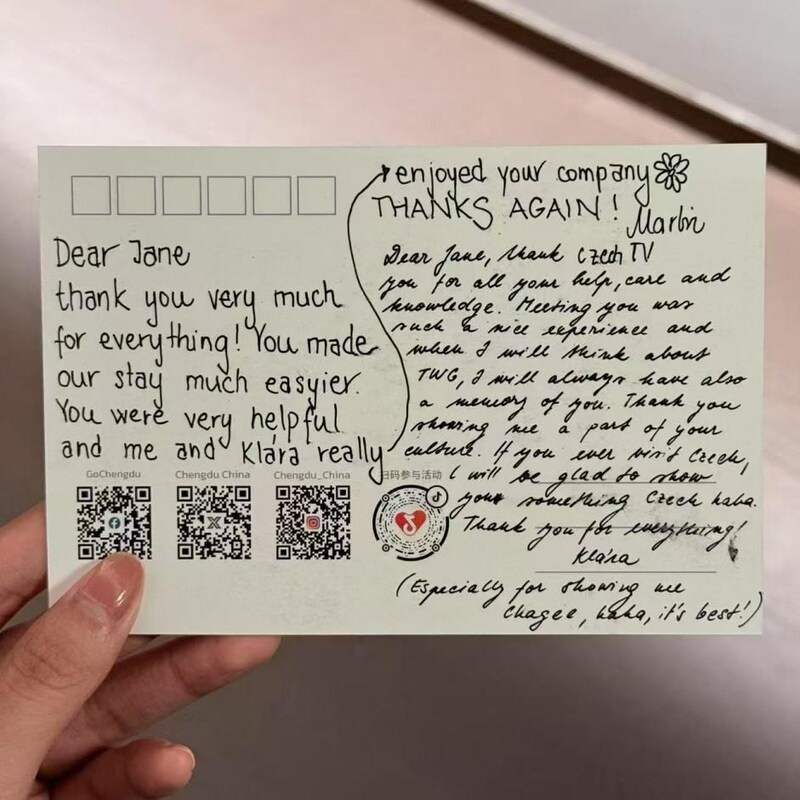 Dear Jane
thank you very much
for everything! You made
our stay much easyier.
You were very helpful
and me and Klára really
enjoyed your company
THANKS AGAIN!
Martin
Czech TV
Dear Jane, thank
you for all your help, care and
knowledge. Meeting you was
such a nice experience and
when I will think about
TWG, I will always have also
a memory of you. Thank you
showing me a part of your
culture. If you ever visit Czech,
I will be glad to show
you something Czech haha.
Thank you for everything!
Klára
(Especially for showing me
Chagee, haha, it's best!)
GoChengdu
Chengdu China
Chengdu_China
扫码参与活动